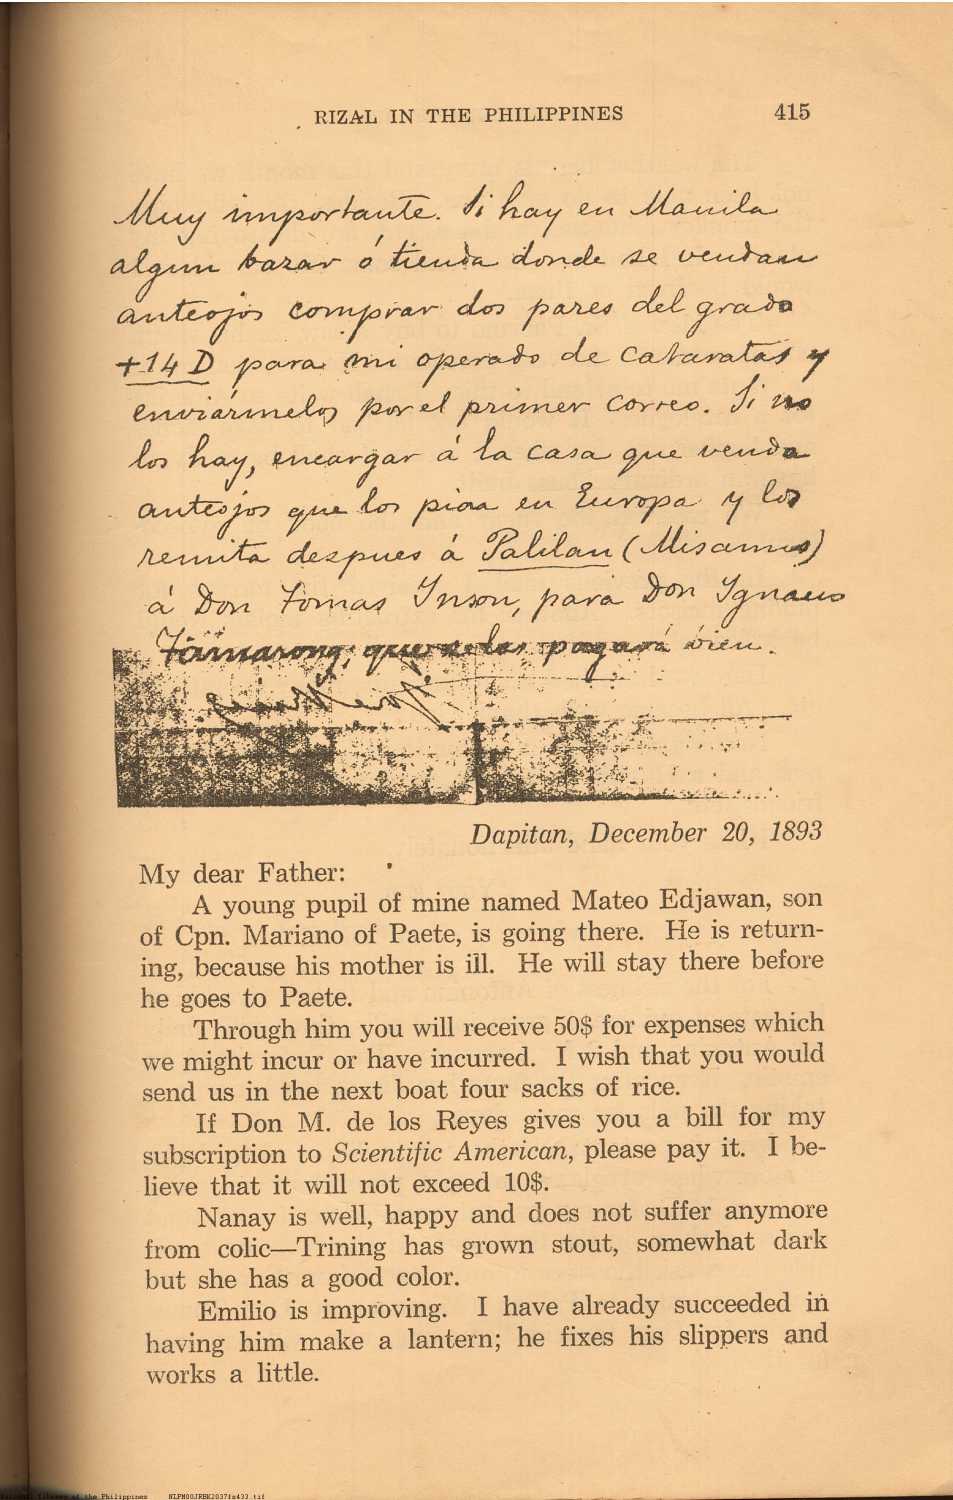 RIZAL IN THE PHILIPPINES 415
Muy importante. Si hay en Manila
algun bazar ó tienda donde se vendan
anteojos comprar dos pares del grado
+14 D para mi operado de cataratas y
enviármelos por el primer correo. Si no
los hay, encargar á la casa que venda
anteojos que los pida en Europa y los
remita despues á Palilan (Misamis)
á Don Tomas Ynson, para Don Ygnacio
Tamarong, que se los pagará bien.
Dapitan, December 20, 1893
My dear Father:
A young pupil of mine named Mateo Edjawan, son
of Cpn. Mariano of Paete, is going there. He is return-
ing, because his mother is ill. He will stay there before
he goes to Paete.
Through him you will receive 50$ for expenses which
we might incur or have incurred. I wish that you would
send us in the next boat four sacks of rice.
If Don M. de los Reyes gives you a bill for my
subscription to Scientific American, please pay it. I be-
lieve that it will not exceed 10$.
Nanay is well, happy and does not suffer anymore
from colic—Trining has grown stout, somewhat dark
but she has a good color.
Emilio is improving. I have already succeeded in
having him make a lantern; he fixes his slippers and
works a little.
of the Philippines NLPM00JRBK2037fs433.tif